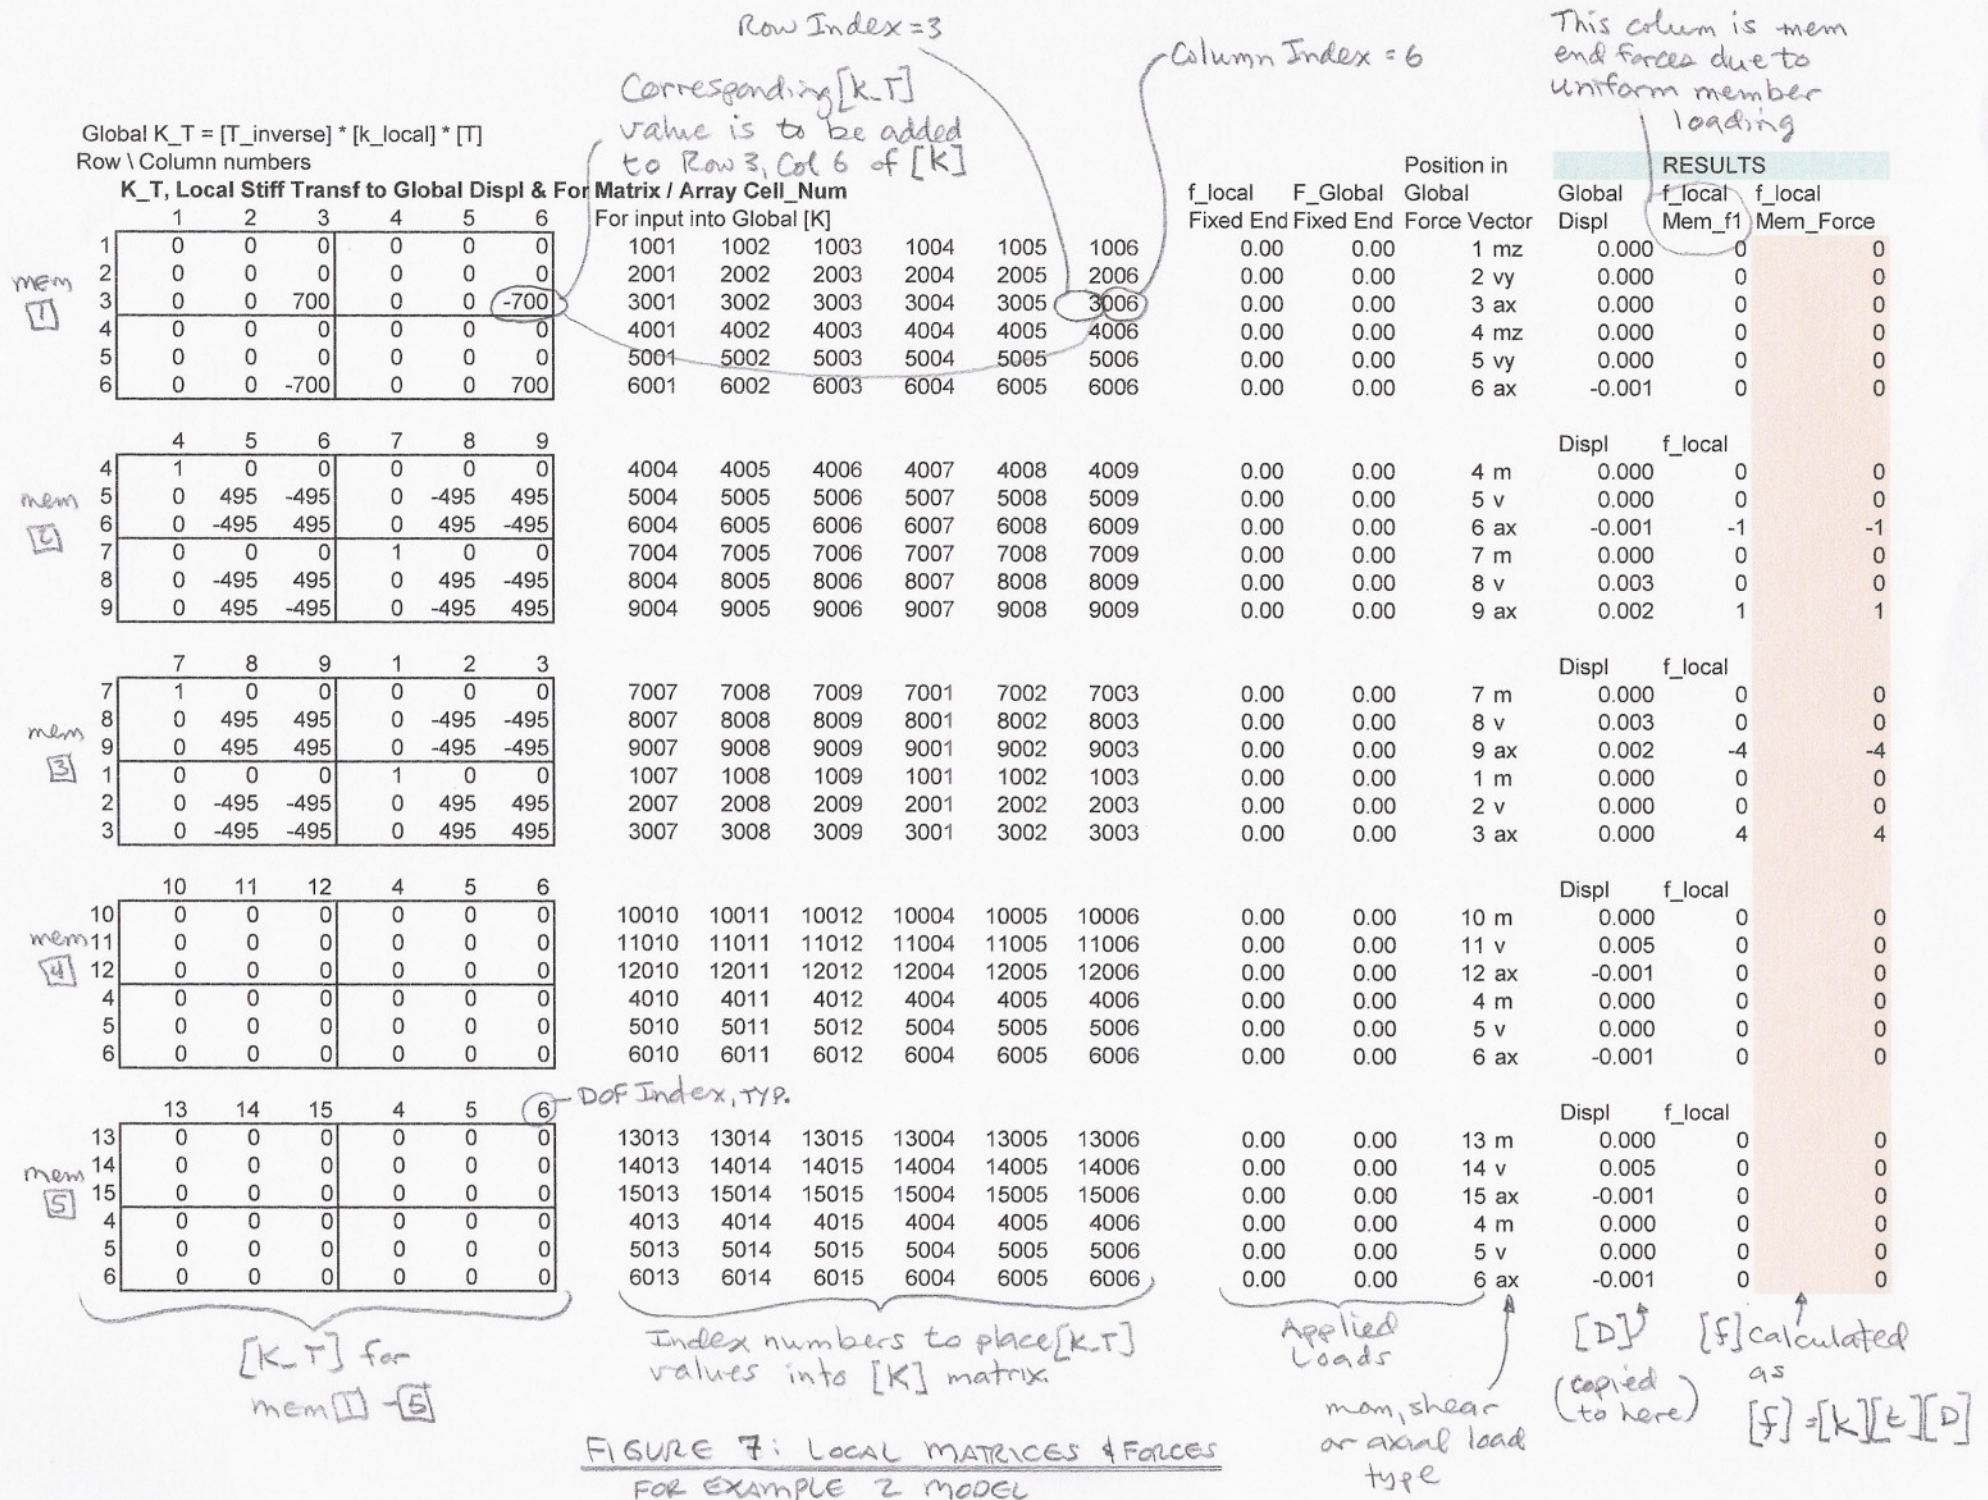 Row Index = 3
Column Index = 6
This colum is mem
end forces due to
uniform member
loading
Corresponding [k_T]
value is to be added
to Row 3, Col 6 of [K]
Global K_T = [T_inverse] * [k_local] * [T]
Row \ Column numbers
Position in RESULTS
K_T, Local Stiff Transf to Global Displ & For Matrix / Array Cell_Num f_local F_Global Global Global f_local f_local
1 2 3 4 5 6 For input into Global [K] Fixed End Fixed End Force Vector Displ Mem_f1 Mem_Force
mem
1
1 0 0 0 0 0 0 1001 1002 1003 1004 1005 1006 0.00 0.00 1 mz 0.000 0 0
2 0 0 0 0 0 0 2001 2002 2003 2004 2005 2006 0.00 0.00 2 vy 0.000 0 0
3 0 0 700 0 0 -700 3001 3002 3003 3004 3005 3006 0.00 0.00 3 ax 0.000 0 0
4 0 0 0 0 0 0 4001 4002 4003 4004 4005 4006 0.00 0.00 4 mz 0.000 0 0
5 0 0 0 0 0 0 5001 5002 5003 5004 5005 5006 0.00 0.00 5 vy 0.000 0 0
6 0 0 -700 0 0 700 6001 6002 6003 6004 6005 6006 0.00 0.00 6 ax -0.001 0 0
4 5 6 7 8 9 Displ f_local
mem
2
4 1 0 0 0 0 0 4004 4005 4006 4007 4008 4009 0.00 0.00 4 m 0.000 0 0
5 0 495 -495 0 -495 495 5004 5005 5006 5007 5008 5009 0.00 0.00 5 v 0.000 0 0
6 0 -495 495 0 495 -495 6004 6005 6006 6007 6008 6009 0.00 0.00 6 ax -0.001 -1 -1
7 0 0 0 1 0 0 7004 7005 7006 7007 7008 7009 0.00 0.00 7 m 0.000 0 0
8 0 -495 495 0 495 -495 8004 8005 8006 8007 8008 8009 0.00 0.00 8 v 0.003 0 0
9 0 495 -495 0 -495 495 9004 9005 9006 9007 9008 9009 0.00 0.00 9 ax 0.002 1 1
7 8 9 1 2 3 Displ f_local
mem
3
7 1 0 0 0 0 0 7007 7008 7009 7001 7002 7003 0.00 0.00 7 m 0.000 0 0
8 0 495 495 0 -495 -495 8007 8008 8009 8001 8002 8003 0.00 0.00 8 v 0.003 0 0
9 0 495 495 0 -495 -495 9007 9008 9009 9001 9002 9003 0.00 0.00 9 ax 0.002 -4 -4
1 0 0 0 1 0 0 1007 1008 1009 1001 1002 1003 0.00 0.00 1 m 0.000 0 0
2 0 -495 -495 0 495 495 2007 2008 2009 2001 2002 2003 0.00 0.00 2 v 0.000 0 0
3 0 -495 -495 0 495 495 3007 3008 3009 3001 3002 3003 0.00 0.00 3 ax 0.000 4 4
10 11 12 4 5 6 Displ f_local
mem
4
10 0 0 0 0 0 0 10010 10011 10012 10004 10005 10006 0.00 0.00 10 m 0.000 0 0
11 0 0 0 0 0 0 11010 11011 11012 11004 11005 11006 0.00 0.00 11 v 0.005 0 0
12 0 0 0 0 0 0 12010 12011 12012 12004 12005 12006 0.00 0.00 12 ax -0.001 0 0
4 0 0 0 0 0 0 4010 4011 4012 4004 4005 4006 0.00 0.00 4 m 0.000 0 0
5 0 0 0 0 0 0 5010 5011 5012 5004 5005 5006 0.00 0.00 5 v 0.000 0 0
6 0 0 0 0 0 0 6010 6011 6012 6004 6005 6006 0.00 0.00 6 ax -0.001 0 0
DOF Index, TYP.
13 14 15 4 5 6 Displ f_local
mem
5
13 0 0 0 0 0 0 13013 13014 13015 13004 13005 13006 0.00 0.00 13 m 0.000 0 0
14 0 0 0 0 0 0 14013 14014 14015 14004 14005 14006 0.00 0.00 14 v 0.005 0 0
15 0 0 0 0 0 0 15013 15014 15015 15004 15005 15006 0.00 0.00 15 ax -0.001 0 0
4 0 0 0 0 0 0 4013 4014 4015 4004 4005 4006 0.00 0.00 4 m 0.000 0 0
5 0 0 0 0 0 0 5013 5014 5015 5004 5005 5006 0.00 0.00 5 v 0.000 0 0
6 0 0 0 0 0 0 6013 6014 6015 6004 6005 6006 0.00 0.00 6 ax -0.001 0 0
[K_T] for
mem 1 - 5
Index numbers to place [k_T]
values into [K] matrix.
Applied
Loads
mom, shear
or axial load
type
[D]
(copied
to here)
[f] calculated
as
[f] = [k][t][D]
FIGURE 7: LOCAL MATRICES & FORCES
FOR EXAMPLE 2 MODEL